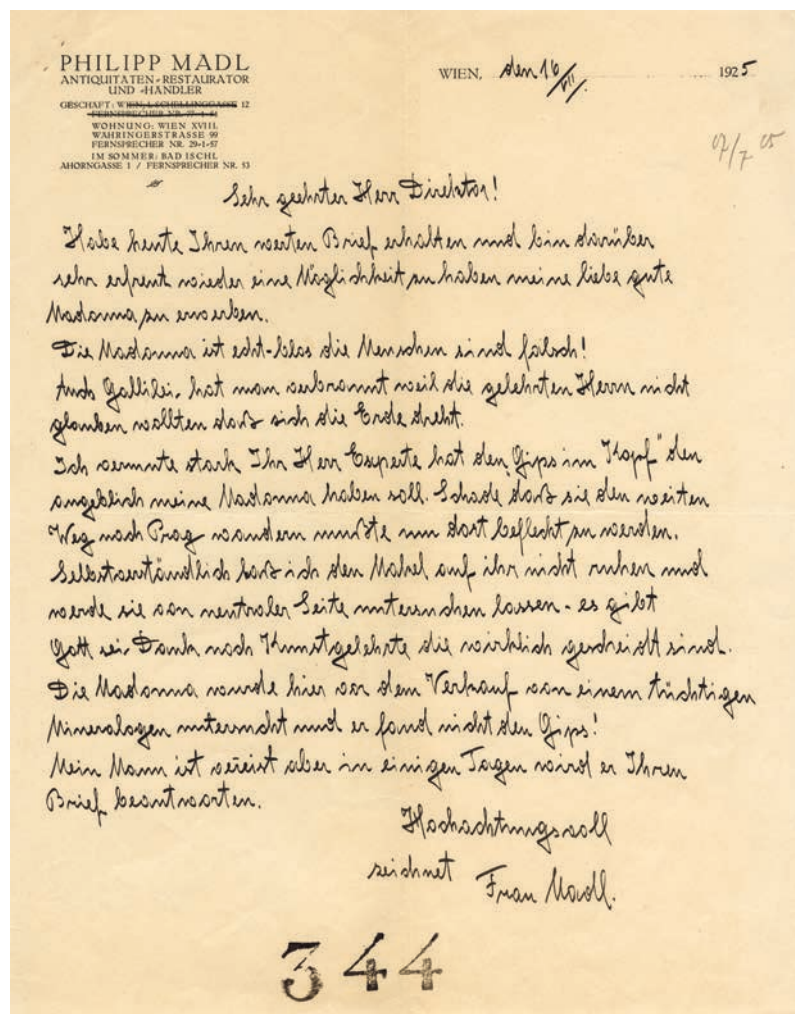 PHILIPP MADL
ANTIQUITÄTEN-RESTAURATOR
UND -HÄNDLER
GESCHÄFT: WIEN, I. SCHELLINGGASSE 12
FERNSPRECHER NR.
WOHNUNG: WIEN XVIII.
WÄHRINGERSTRASSE 99
FERNSPRECHER NR. 29-1-57
IM SOMMER: BAD ISCHL
AHORNGASSE 1 / FERNSPRECHER NR. 53
WIEN, den 16/VII. 1925
Sehr geehrter Herr Direktor!
Habe heute Ihren werten Brief erhalten und bin darüber
sehr erfreut wieder eine Möglichkeit zu haben meine liebe gute
Madonna zu erwerben.
Die Madonna ist echt-blos die Menschen sind falsch!
Auch Gallilei, hat man verbrannt weil die gelehrten Herrn nicht
glauben wollten daß sich die Erde dreht.
Ich vermute stark Ihr Herr Experte hat den „Gips im Kopf" den
angeblich meine Madonna haben soll. Schade daß sie den weiten
Weg nach Prag wandern mußte um dort befleckt zu werden.
Selbstverständlich laß ich den Makel auf ihr nicht ruhen und
werde sie von neutraler Seite untersuchen lassen - es gibt
Gott sei Dank noch Kunstgelehrte die wirklich gescheidt sind.
Die Madonna wurde hier vor dem Verkauf von einem tüchtigen
Mineralogen untersucht und er fand nicht den Gips!
Mein Mann ist verreist aber in einigen Tagen wird er Ihren
Brief beantworten.
Hochachtungsvoll
zeichnet Frau Madl.
344